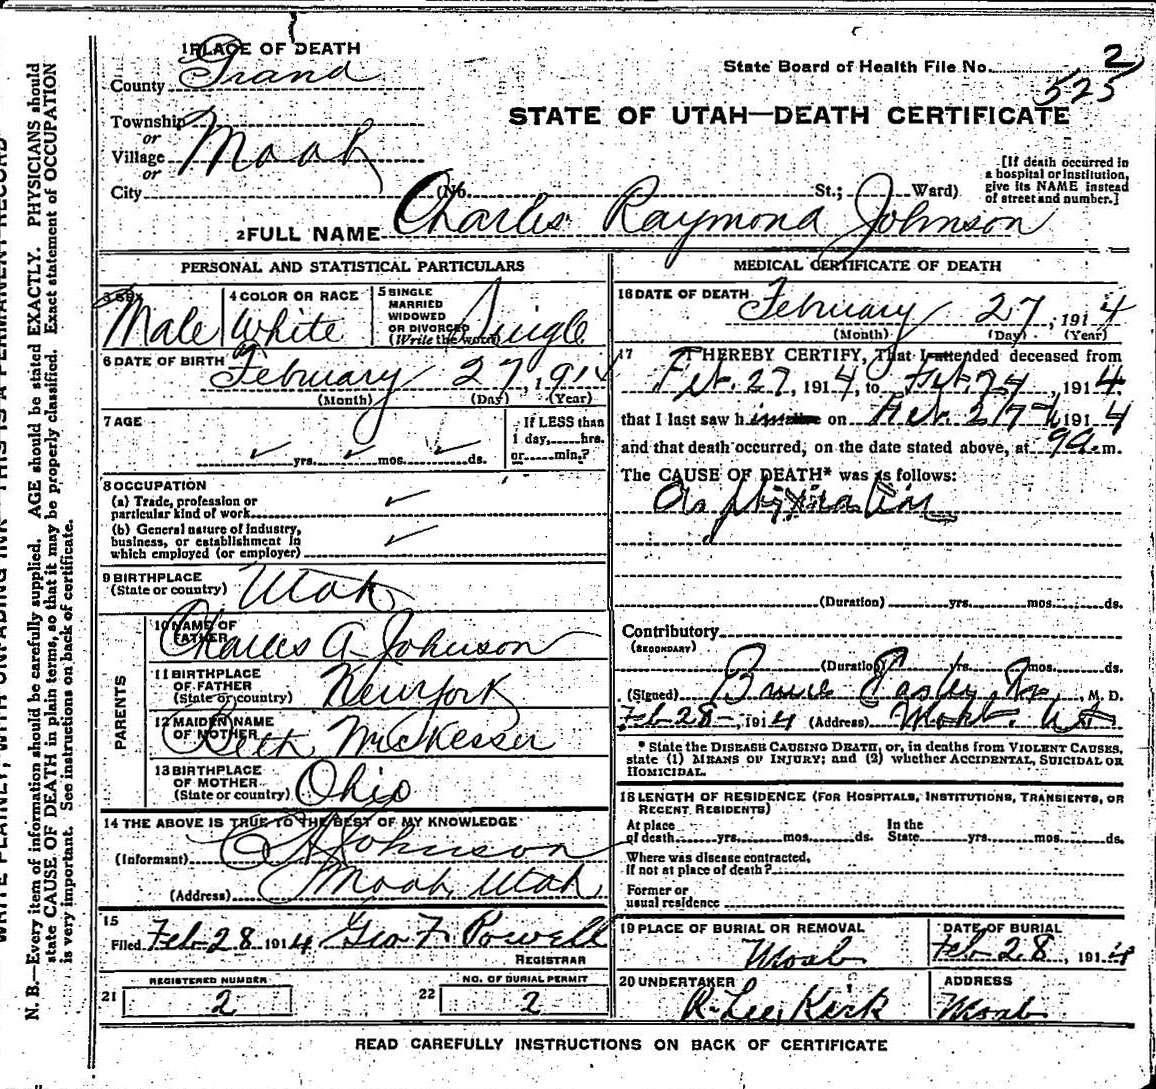 1 PLACE OF DEATH
County Grand
Township
or
Village Moab
or
City (No. St.; Ward)
State Board of Health File No. 2
525
STATE OF UTAH—DEATH CERTIFICATE
[If death occurred in
a hospital or institution,
give its NAME instead
of street and number.]
2 FULL NAME Charles Raymond Johnson
PERSONAL AND STATISTICAL PARTICULARS
3 SEX
Male
4 COLOR OR RACE
White
5 SINGLE
MARRIED
WIDOWED
OR DIVORCED
(Write the word)
Single
6 DATE OF BIRTH
February 27, 1914
(Month) (Day) (Year)
7 AGE
yrs. mos. ds.
If LESS than
1 day, hrs.
or min.?
8 OCCUPATION
(a) Trade, profession or
particular kind of work
(b) General nature of industry,
business, or establishment in
which employed (or employer)
9 BIRTHPLACE
(State or country) Utah
PARENTS
10 NAME OF
FATHER
Charles A Johnson
11 BIRTHPLACE
OF FATHER
(State or country) New York
12 MAIDEN NAME
OF MOTHER
McKesser
13 BIRTHPLACE
OF MOTHER
(State or country) Ohio
14 THE ABOVE IS TRUE TO THE BEST OF MY KNOWLEDGE
(Informant) C A Johnson
(Address) Moab, Utah
15
Filed Feb 28 1914 Geo F. Powell
REGISTRAR
21 REGISTERED NUMBER
2
22 NO. OF BURIAL PERMIT
2
MEDICAL CERTIFICATE OF DEATH
16 DATE OF DEATH
February 27, 1914
(Month) (Day) (Year)
17 I HEREBY CERTIFY, That I attended deceased from
Feb. 27, 1914, to Feb. , 1914.
that I last saw h on Feb. 27 1914
and that death occurred, on the date stated above, at 9a m.
The CAUSE OF DEATH* was as follows:
Asphyxiation
(Duration) yrs. mos. ds.
Contributory
(SECONDARY)
(Duration) yrs. mos. ds.
(Signed) M. D.
Feb 28, 1914 (Address) Moab. Ut
* State the DISEASE CAUSING DEATH, or, in deaths from VIOLENT CAUSES,
state (1) MEANS OF INJURY; and (2) whether ACCIDENTAL, SUICIDAL OR
HOMICIDAL.
18 LENGTH OF RESIDENCE (FOR HOSPITALS, INSTITUTIONS, TRANSIENTS, OR
RECENT RESIDENTS)
At place
of death yrs. mos. ds. In the
State yrs. mos. ds.
Where was disease contracted,
if not at place of death?
Former or
usual residence
19 PLACE OF BURIAL OR REMOVAL
Moab
DATE OF BURIAL
Feb 28, 1914
20 UNDERTAKER
R. Lee Kirk
ADDRESS
Moab
READ CAREFULLY INSTRUCTIONS ON BACK OF CERTIFICATE
WRITE PLAINLY, WITH UNFADING INK—THIS IS A PERMANENT RECORD
N. B.—Every item of information should be carefully supplied. AGE should be stated EXACTLY. PHYSICIANS should
state CAUSE OF DEATH in plain terms, so that it may be properly classified. Exact statement of OCCUPATION
is very important. See instructions on back of certificate.